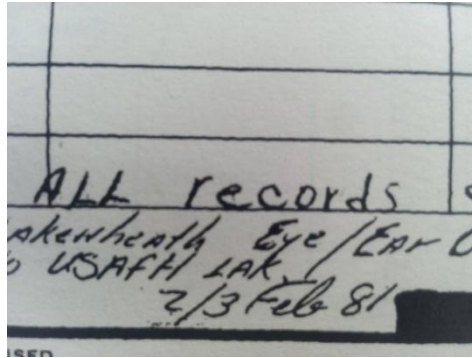 ALL records
akenheath Eye/Ear
USAFH LAK
2/3 Feb 81
ISED